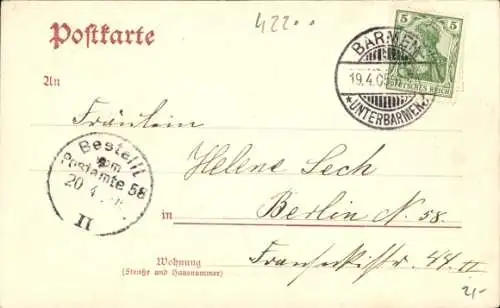 42200
Postkarte
5
BARMEN-
19.4.05
*UNTERBARMEN.
DEUTSCHES REICH
An
Fräulein
Helene Sech
Bestellt
vom
Postamte 58
20 4
II
in Berlin N. 58.
Wohnung
(Straße und Hausnummer)
44 II
21,-